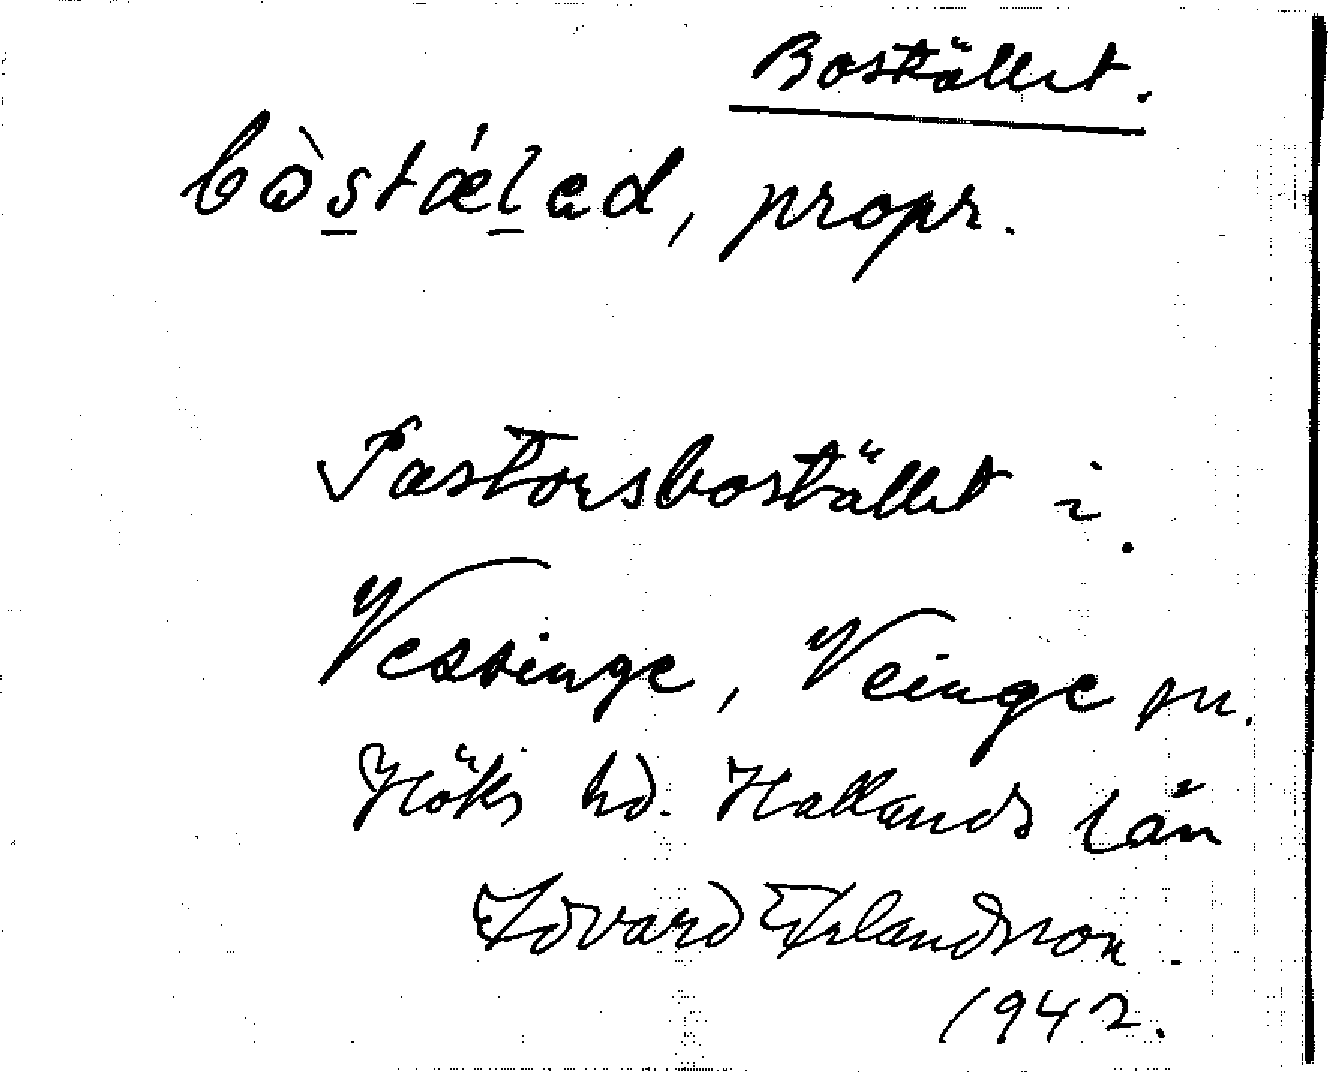 Bostället.
bòstǽled, propr.
Pastorsbostället i
Vessinge, Veinge sn.
Höks hd. Hallands län
Edvard Erlandsson.
1942.